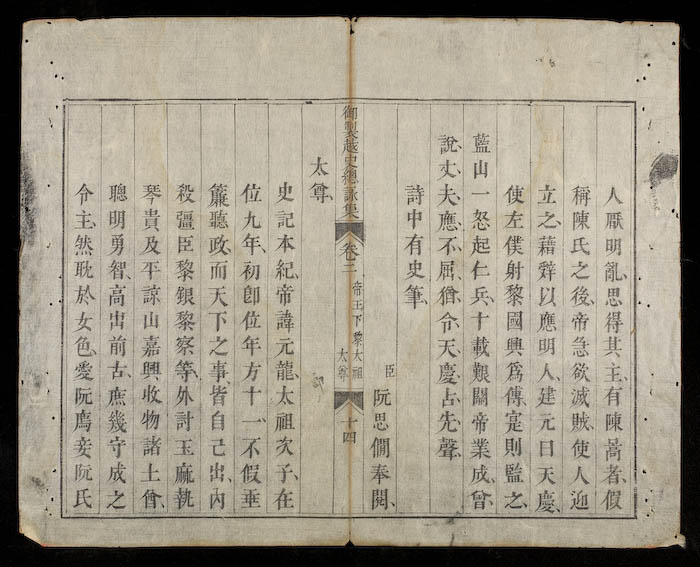 人厭明亂思得其主有陳暠者假
稱陳氏之後帝急欲滅賊使人迎
立之藉辭以應明人建元曰天慶
使左僕射黎國興爲傅寔則監之
藍山一怒起仁兵十載艱關帝業成曾
說丈夫應不屈猶令天慶占先聲
詩中有史筆
臣 阮思僩奉閱
御製越史總詠集 卷二 帝王下黎太祖 太尊 十四
太尊
史記本紀帝諱元龍太祖次子在
位九年初卽位年方十一不假垂
簾聽政而天下之事皆自己出內
殺彊臣黎銀黎察等外討玉麻執
琴貴及平諒山嘉興收物諸土酋
聰明勇智高出前古庶幾守成之
令主然耽於女色愛阮廌妾阮氏